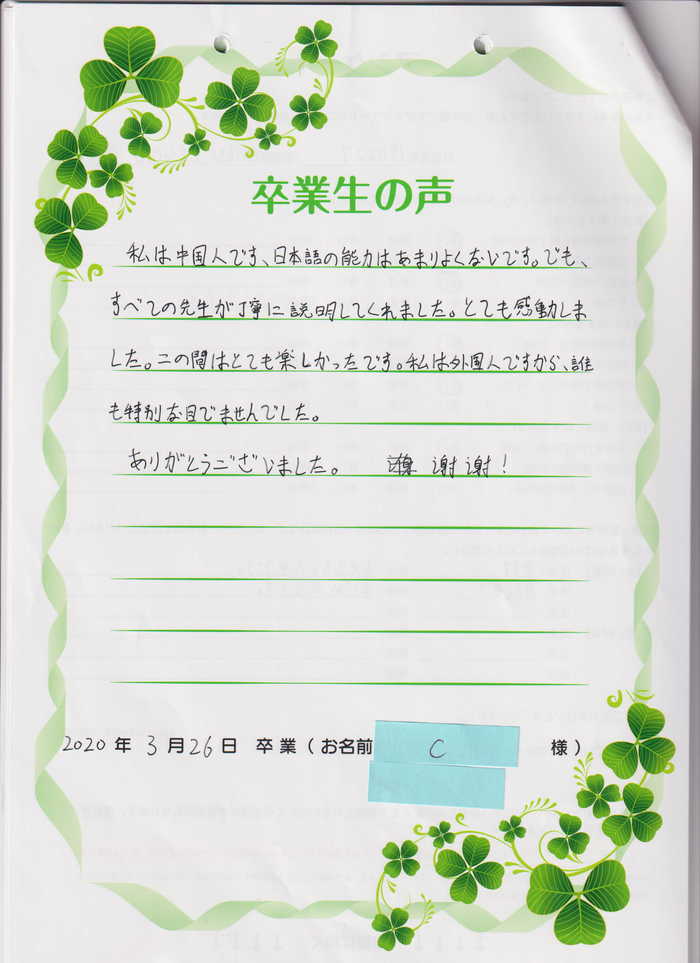 卒業生の声
私は中国人です、日本語の能力はあまりよくないです。でも、
すべての先生が丁寧に説明してくれました。とても感動しま
した。この間はとても楽しかったです。私は外国人ですから、誰
も特別な目でませんでした。
ありがとうございました。 謝謝!
2020年3月26日 卒業(お名前 C 様)